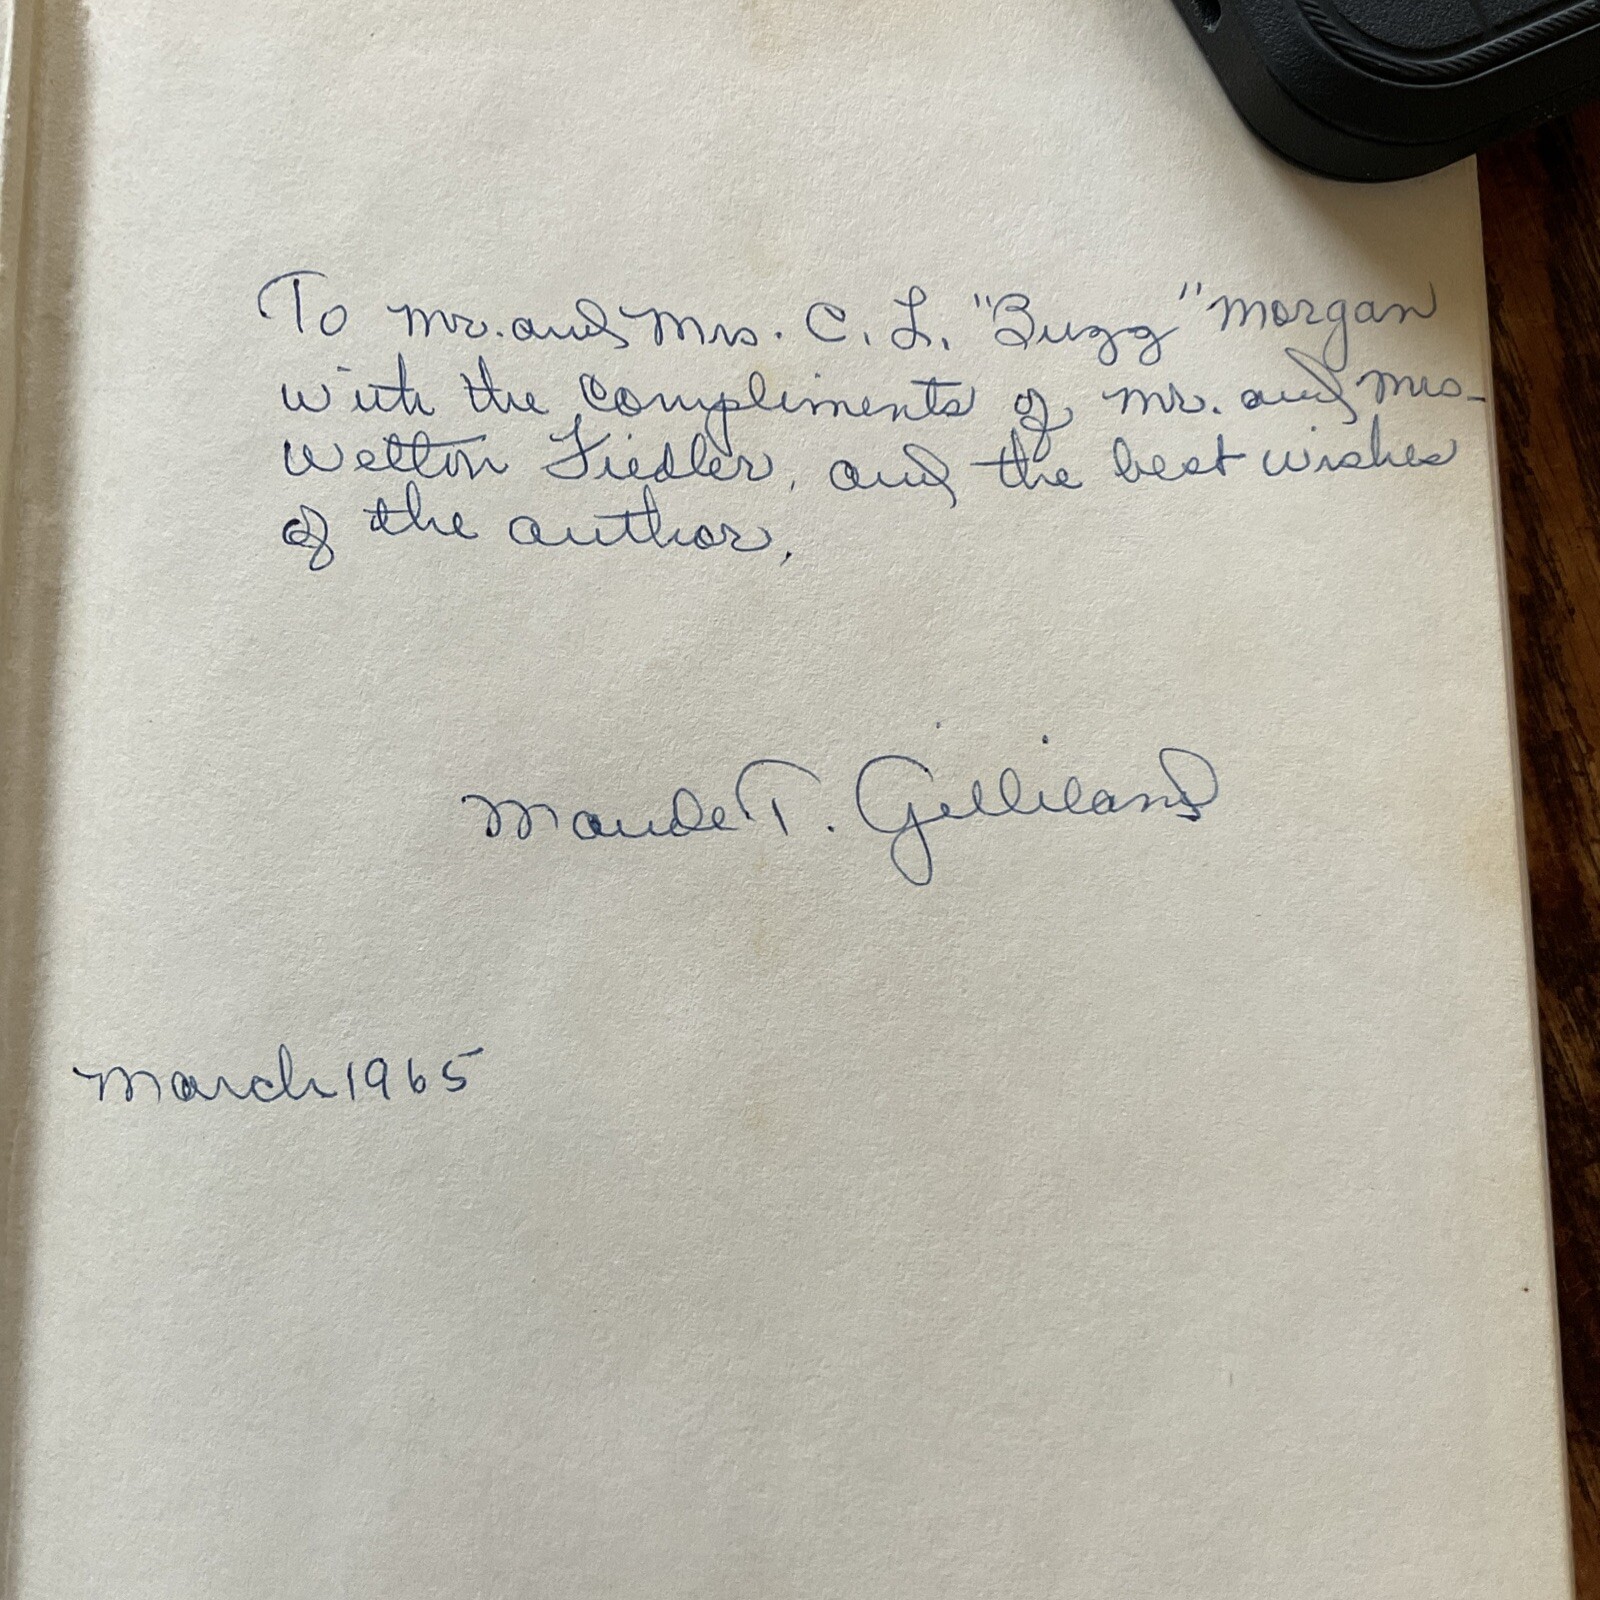 To Mr. and Mrs. C. L. "Bugg" Morgan
with the compliments of Mr. and Mrs.
Welton Fiedler, and the best wishes
of the author,
Maude T. Gilliland
March 1965